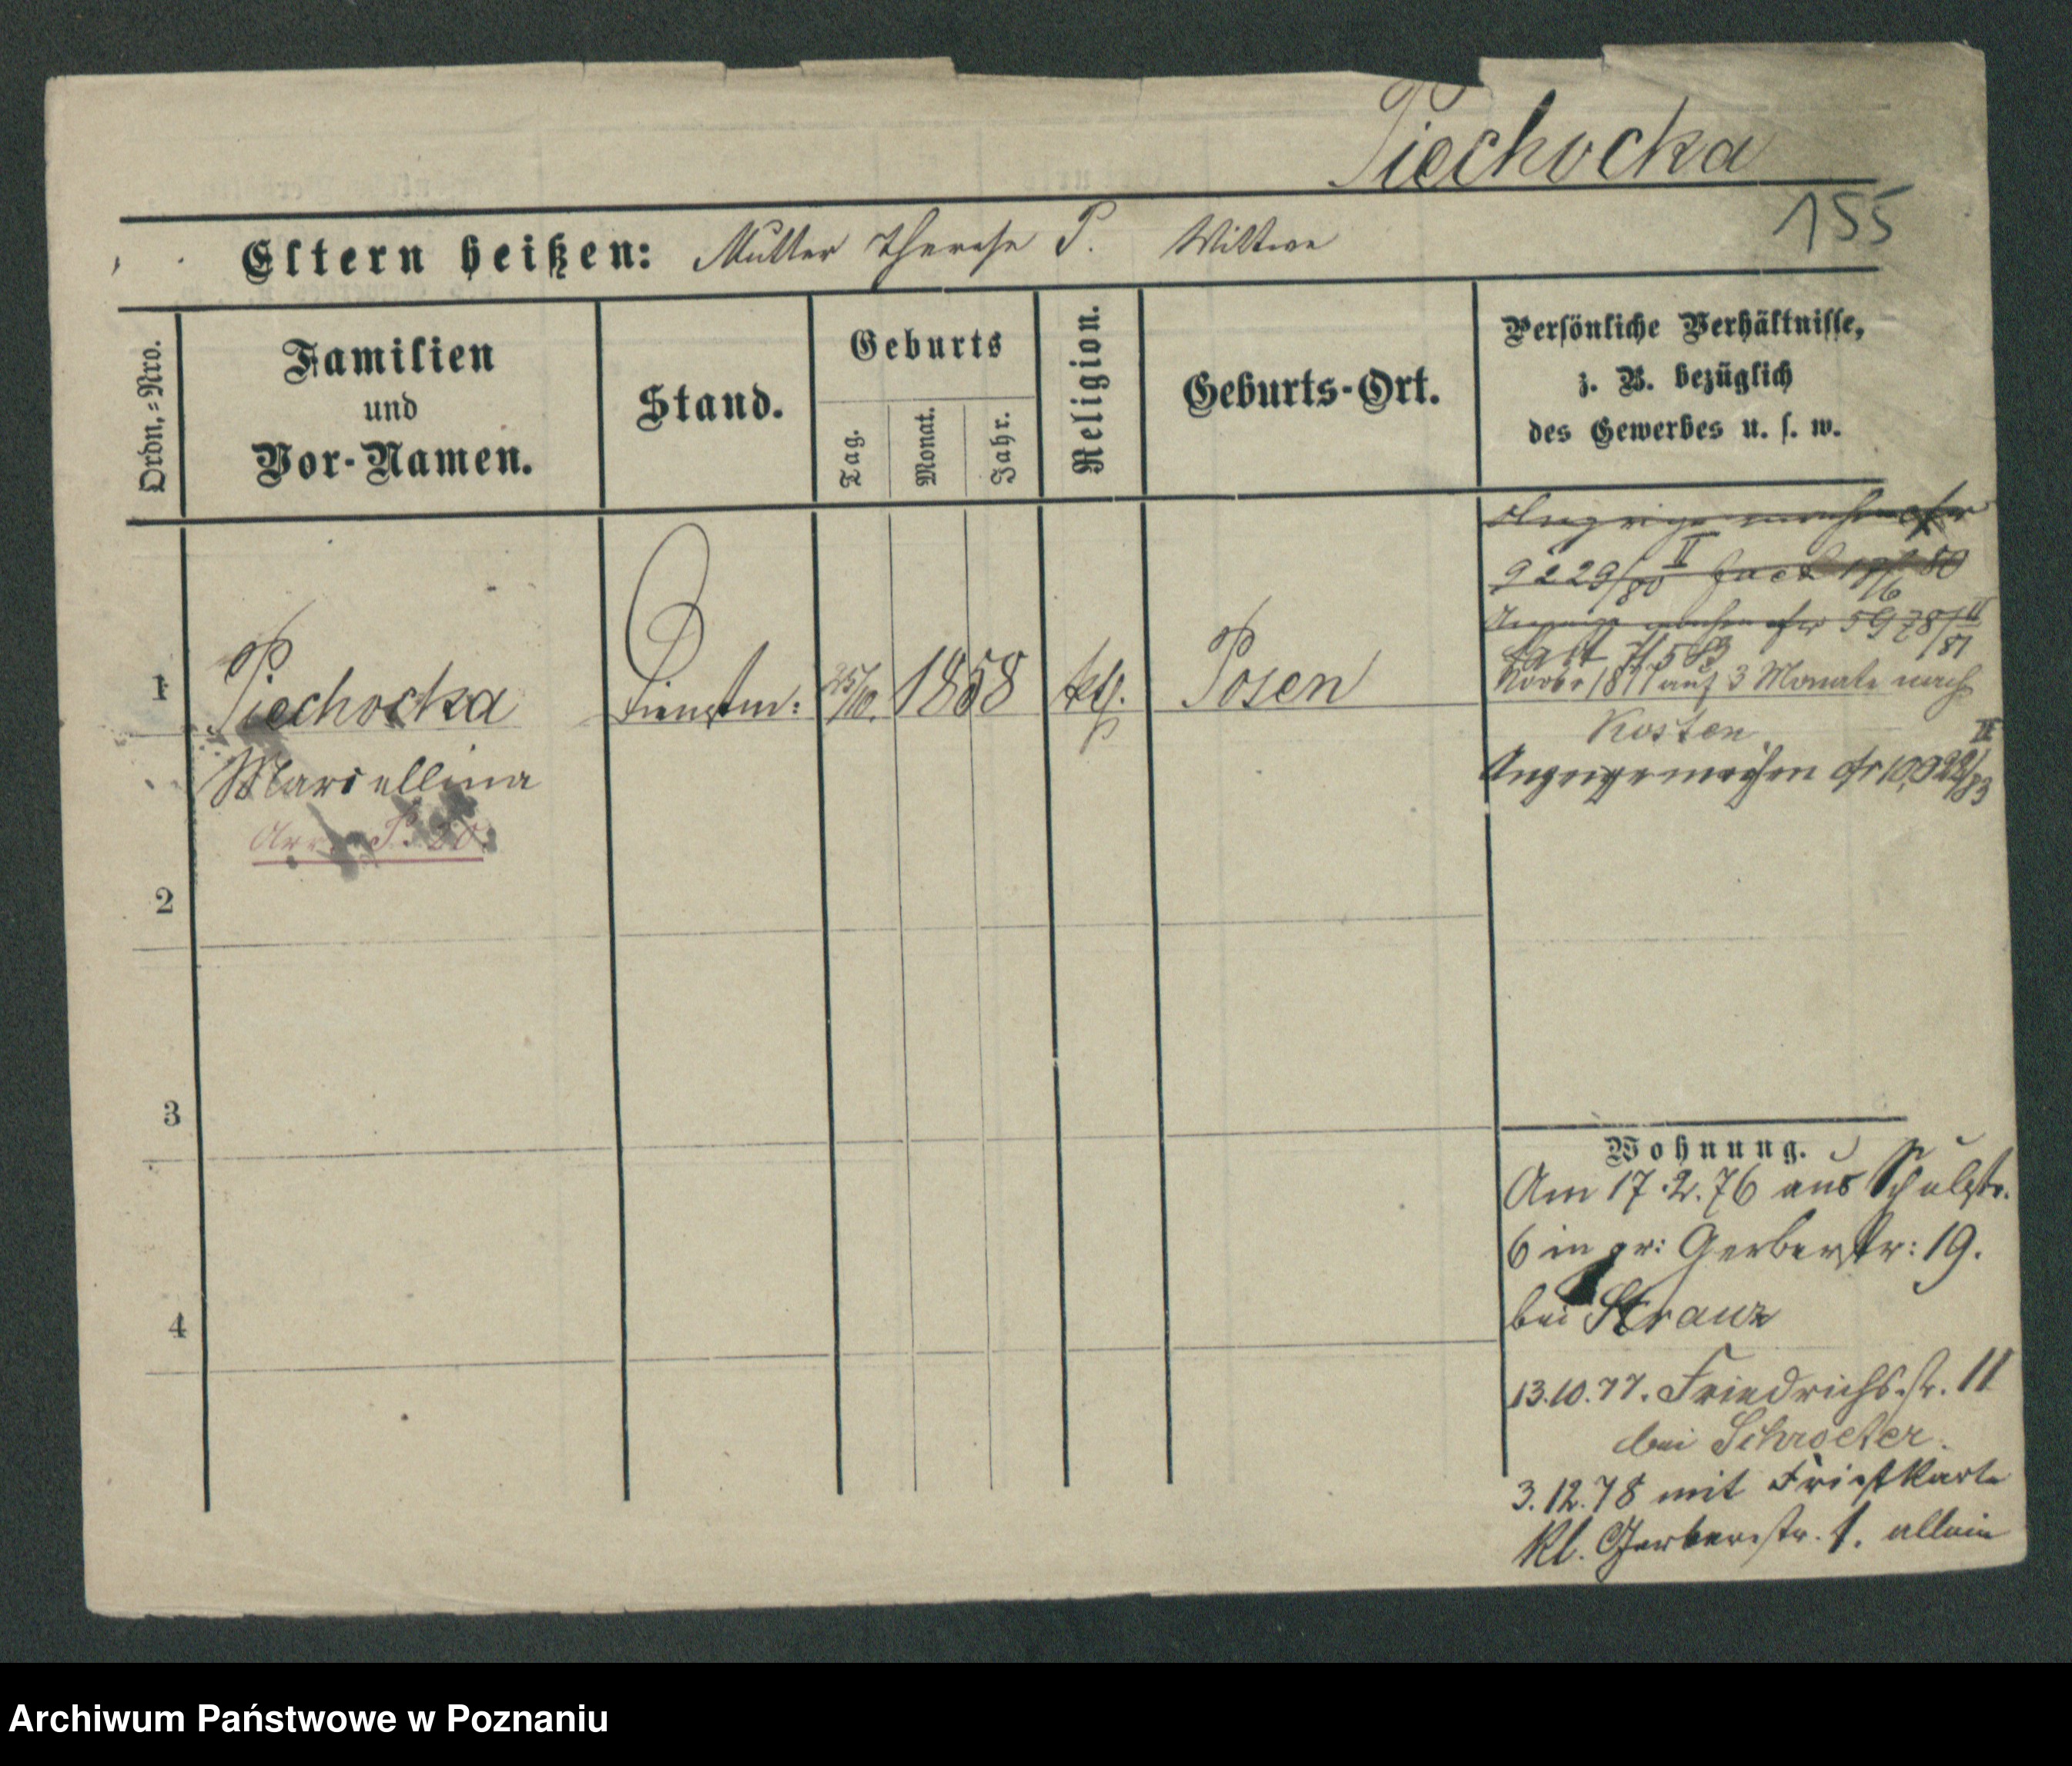 Piechocka
155
Eltern heißen: Mutter Therese P. Wittwe
Ordn.=Nro.
Familien
und
Vor-Namen.
Stand.
Geburts
Tag.
Monat.
Jahr.
Religion.
Geburts-Ort.
Persönliche Verhältnisse,
z. B. bezüglich
des Gewerbes u. s. w.
9229/80 II 80
5978/81 II
1 Piechocka Dienstm: 25/10. 1858 kth. Posen
Novbr 1877 auf 3 Monate nach
Kosten
Marcellina
Anzeige machen
2
3
4
Wohnung.
Am 17.2.76 aus Schulstr.
6 in gr: Gerberstr: 19.
bei Kranz
13.10.77. Friedrichs.str. 11
bei Schroeter.
3.12.78 mit
kl. Gerberstr. 1. allein
Archiwum Państwowe w Poznaniu